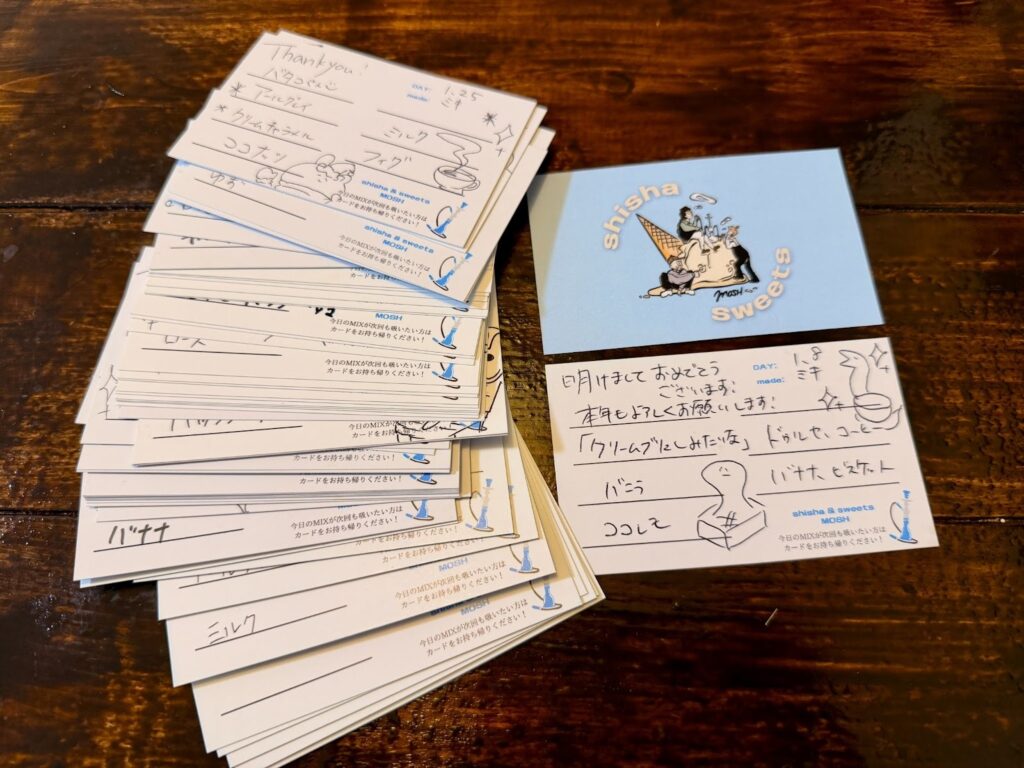 Thank you!
DAY: 1.25
made: ミキ
アールグレイ
ミルク
クリームキャラメル
フィグ
ココナッツ
shisha & sweets
MOSH
今日のMIXが次回も吸いたい方は
カードをお持ち帰りください！
ゆず
shisha & sweets
MOSH
今日のMIXが次回も吸いたい方は
カードをお持ち帰りください！
MOSH
今日のMIXが次回も吸いたい方は
カードをお持ち帰りください！
今日のMIXが次回も吸いたい方は
カードをお持ち帰りください！
バナナ
今日のMIXが次回も吸いたい方は
カードをお持ち帰りください！
MOSH
今日のMIXが次回も吸いたい方は
カードをお持ち帰りください！
ミルク
MOSH
今日のMIXが次回も吸いたい方は
カードをお持ち帰りください！
shisha
MOSH
sweets
明けましておめでとう
ございます!
DAY: 1.8
made: ミキ
本年もよろしくお願いします!
「クリームブリュレみたいな」
ドゥルセ、コーヒー
バニラ
バナナ、ビスケット
ココレモ
shisha & sweets
MOSH
今日のMIXが次回も吸いたい方は
カードをお持ち帰りください！